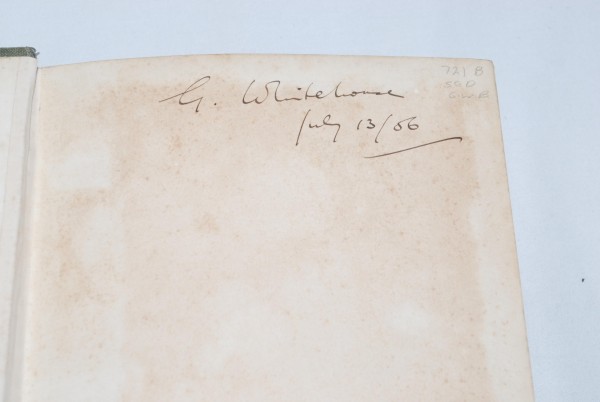 G. Whitehouse
July 13/06
721 B